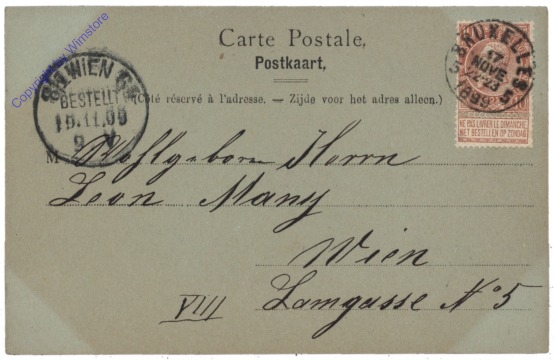 Carte Postale,
Postkaart,
(Côté réservé à l'adresse. — Zijde voor het adres alleen.)
BRUXELLES 5
17
NOVE
1899
5
NE PAS LIVRER LE DIMANCHE
NIET BESTELLEN OP ZONDAG
WIEN
BESTELLT
9 V
Copyright by Wimstore
M Wohlgeboren Herrn
Leon Many
Wien
VIII Lamgasse No 5